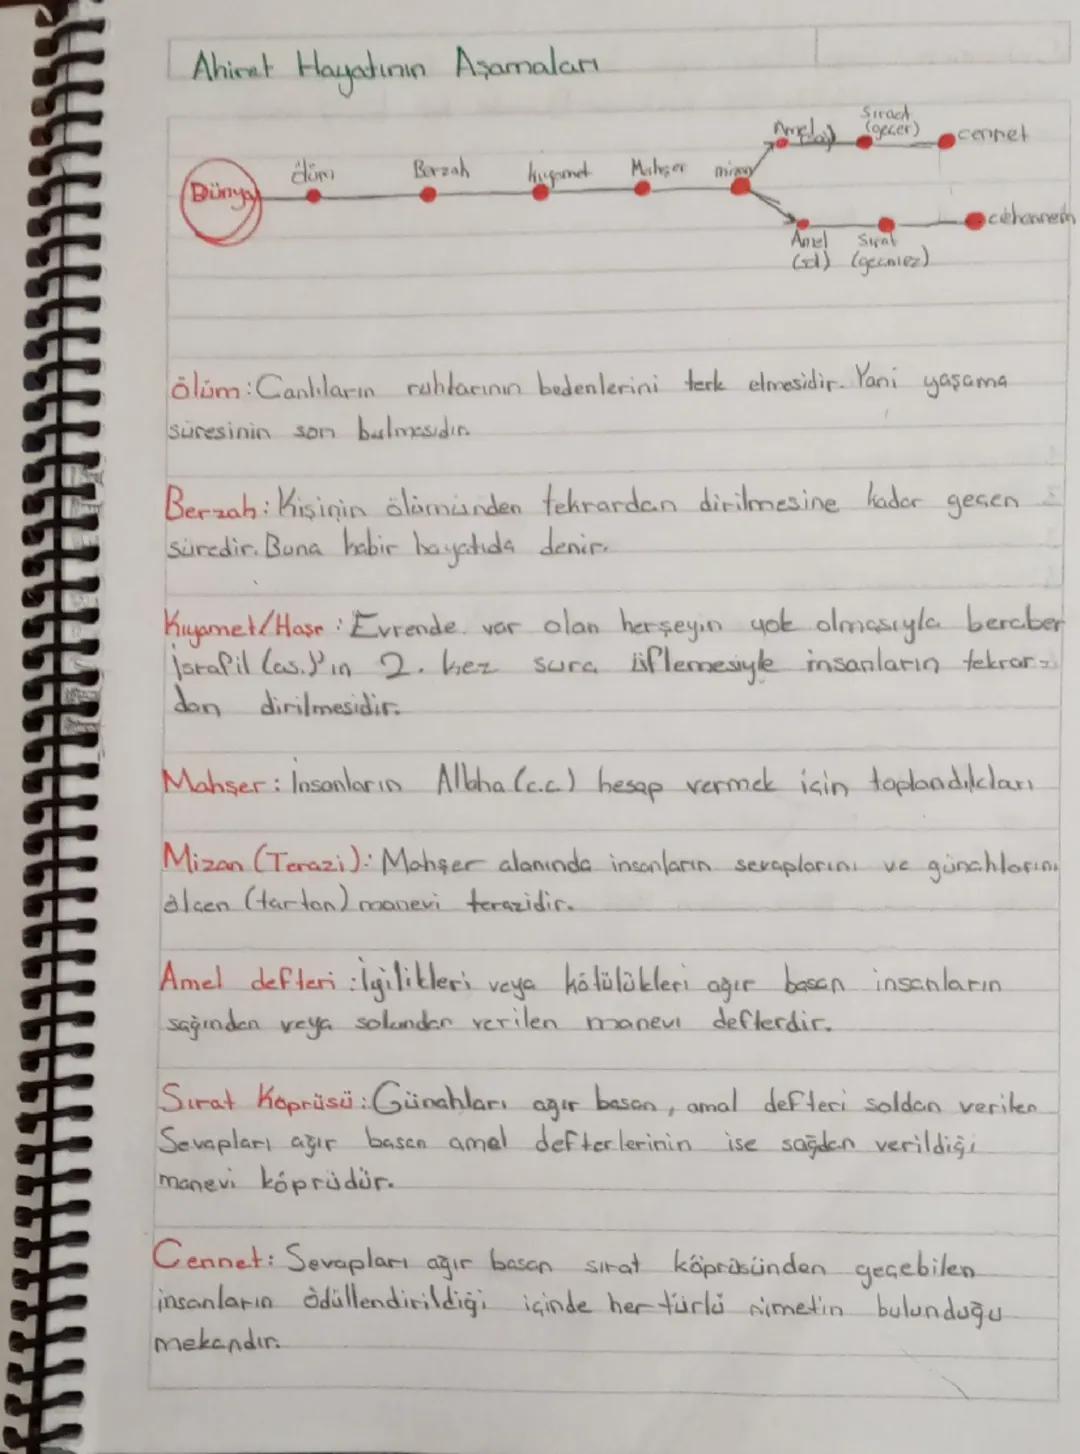 Ahiret Hayatının Aşamaları
Dünya ölüm Berzah kıyamet Mahşer mizan
Amel Sıraat (geçer) cennet
Amel (sol) Sırat (geçmez) cehennem
ölüm: Canlıların ruhlarının bedenlerini terk etmesidir. Yani yaşama
süresinin son bulmasıdır.
Berzah: Kişinin ölümünden tekrardan dirilmesine kadar geçen
süredir. Buna kabir hayatıda denir.
Kıyamet/Haşr: Evrende var olan herşeyin yok olmasıyla beraber
israfil (as.)'ın 2. kez sura üflemesiyle insanların tekrar-
dan dirilmesidir.
Mahşer: İnsanların Allaha (c.c.) hesap vermek için toplandıkları
Mizan (Terazi): Mahşer alanında insanların sevaplarını ve günahlarını
ölçen (tartan) manevi terazidir.
Amel defteri: İyilikleri veya kötülükleri ağır basan insanların
sağından veya solundan verilen manevi defterdir.
Sırat Köprüsü: Günahları ağır basan, amal defteri soldan verilen
Sevapları ağır basan amel defterlerinin ise sağdan verildiği
manevi köprüdür.
Cennet: Sevapları ağır basan sırat köprüsünden geçebilen
insanların ödüllendirildiği içinde her türlü nimetin bulunduğu
mekandır.